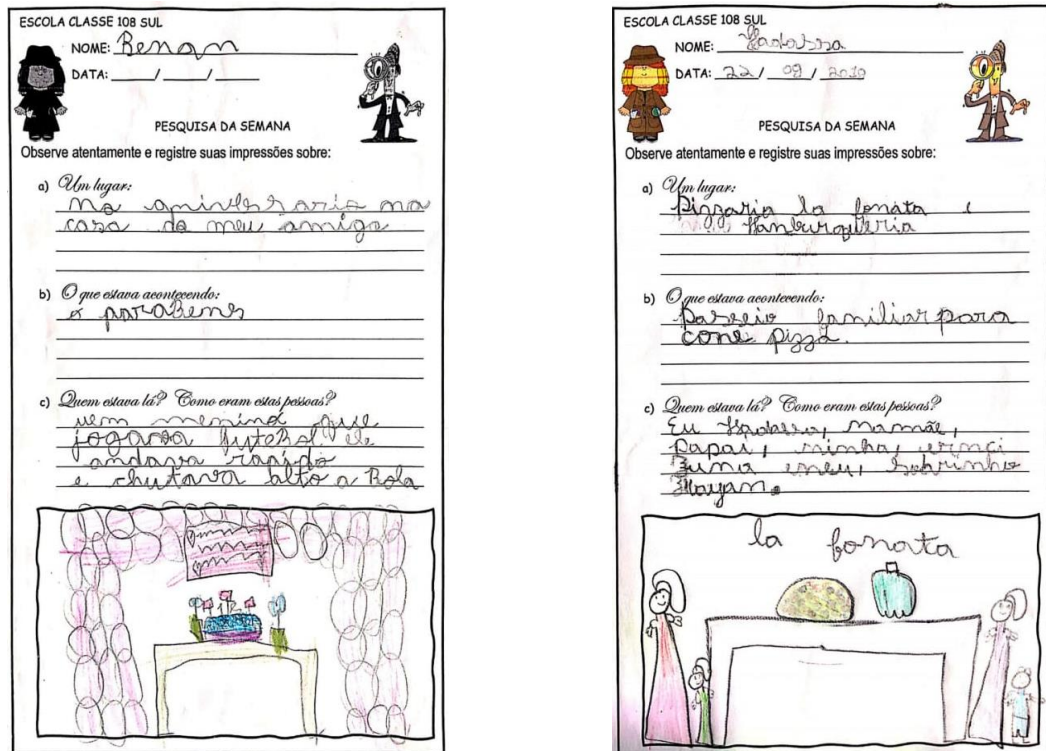 ESCOLA CLASSE 108 SUL
NOME: Renan
DATA: ____/____/____
PESQUISA DA SEMANA
Observe atentamente e registre suas impressões sobre:
a) Um lugar:
no aniversario na
casa do meu amigo
b) O que estava acontecendo:
o parabens
c) Quem estava lá? Como eram estas pessoas?
menino que
jogava futebol ele
andava
e chutava alto a Bola
ESCOLA CLASSE 108 SUL
NOME: Hadassa
DATA: 22/09/2010
PESQUISA DA SEMANA
Observe atentamente e registre suas impressões sobre:
a) Um lugar:
Pizzaria la fonata e
Hanburgueria
b) O que estava acontecendo:
Passeio familiar para
come pizza.
c) Quem estava lá? Como eram estas pessoas?
Eu Hadassa, mamãe,
Papai, minha,
Sobrinho
la fonata